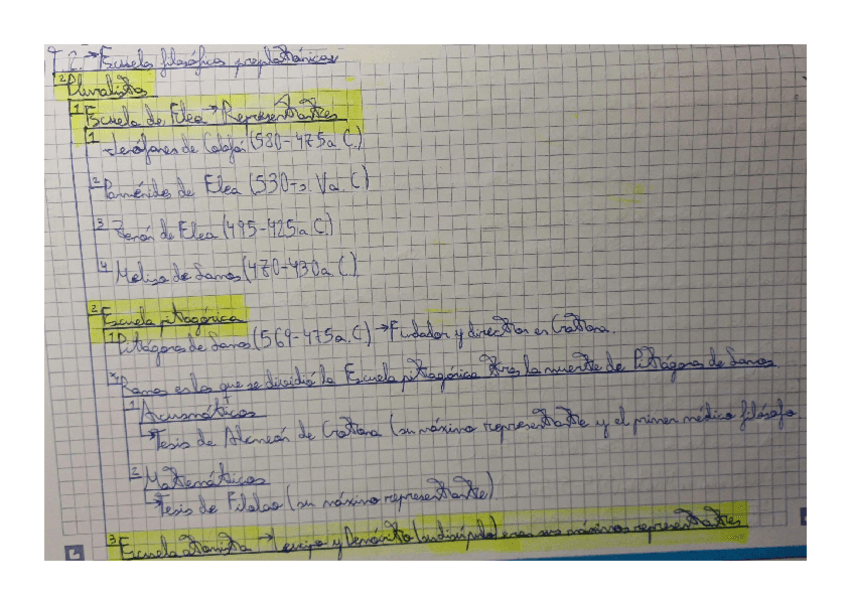 T.2.→Escuelas filosóficas preplatónicas
2 Pluralistas
1 Escuela de Elea→Representantes
1 Jenófanes de Colofón (580-475a.C.)
2 Parménides de Elea (530-s. Va.C)
3 Zenón de Elea (495-425a.C.)
4 Meliso de Samos (470-430a.C)
2 Escuela pitagórica
1 Pitágoras de Samos (569-475a.C) →Fundador y director en Crotona.
* Ramas en las que se dividió la Escuela pitagórica tras la muerte de Pitágoras de Samos
1 Acusmáticos
→Tesis de Alcmeón de Crotona (su máximo representante y el primer médico filósofo
2 Matemáticos
→Tesis de Filolao (su máximo representante)
3 Escuela atomista → Leucipo y Demócrito (su discípulo) eran sus máximos representantes